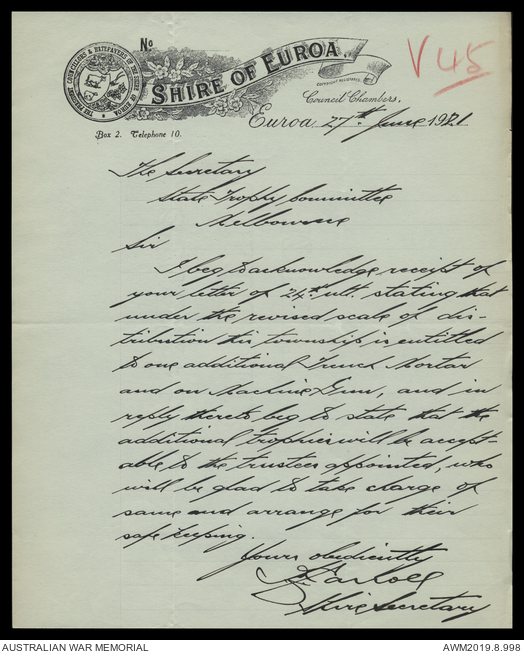 No
THE PRESIDENT, COUNCILLORS & RATEPAYERS OF THE SHIRE OF EUROA
SHIRE OF EUROA.
COPYRIGHT REGISTERED.
V 45
Council Chambers,
Euroa 27th June 1921
Box 2. Telephone 10.
The Secretary
State Trophy Committee
Melbourne
Sir
I beg to acknowledge receipt of
your letter of 24th ult. stating that
under the revised scale of dis-
tribution this township is entitled
to one additional Trench Mortar
and on Machine Gun, and in
reply thereto beg to state that the
additional trophies will be accept-
able to the trustees appointed, who
will be glad to take charge of
same and arrange for their
safe keeping.
Yours obediently
Shire Secretary
AUSTRALIAN WAR MEMORIAL
AWM2019.8.998